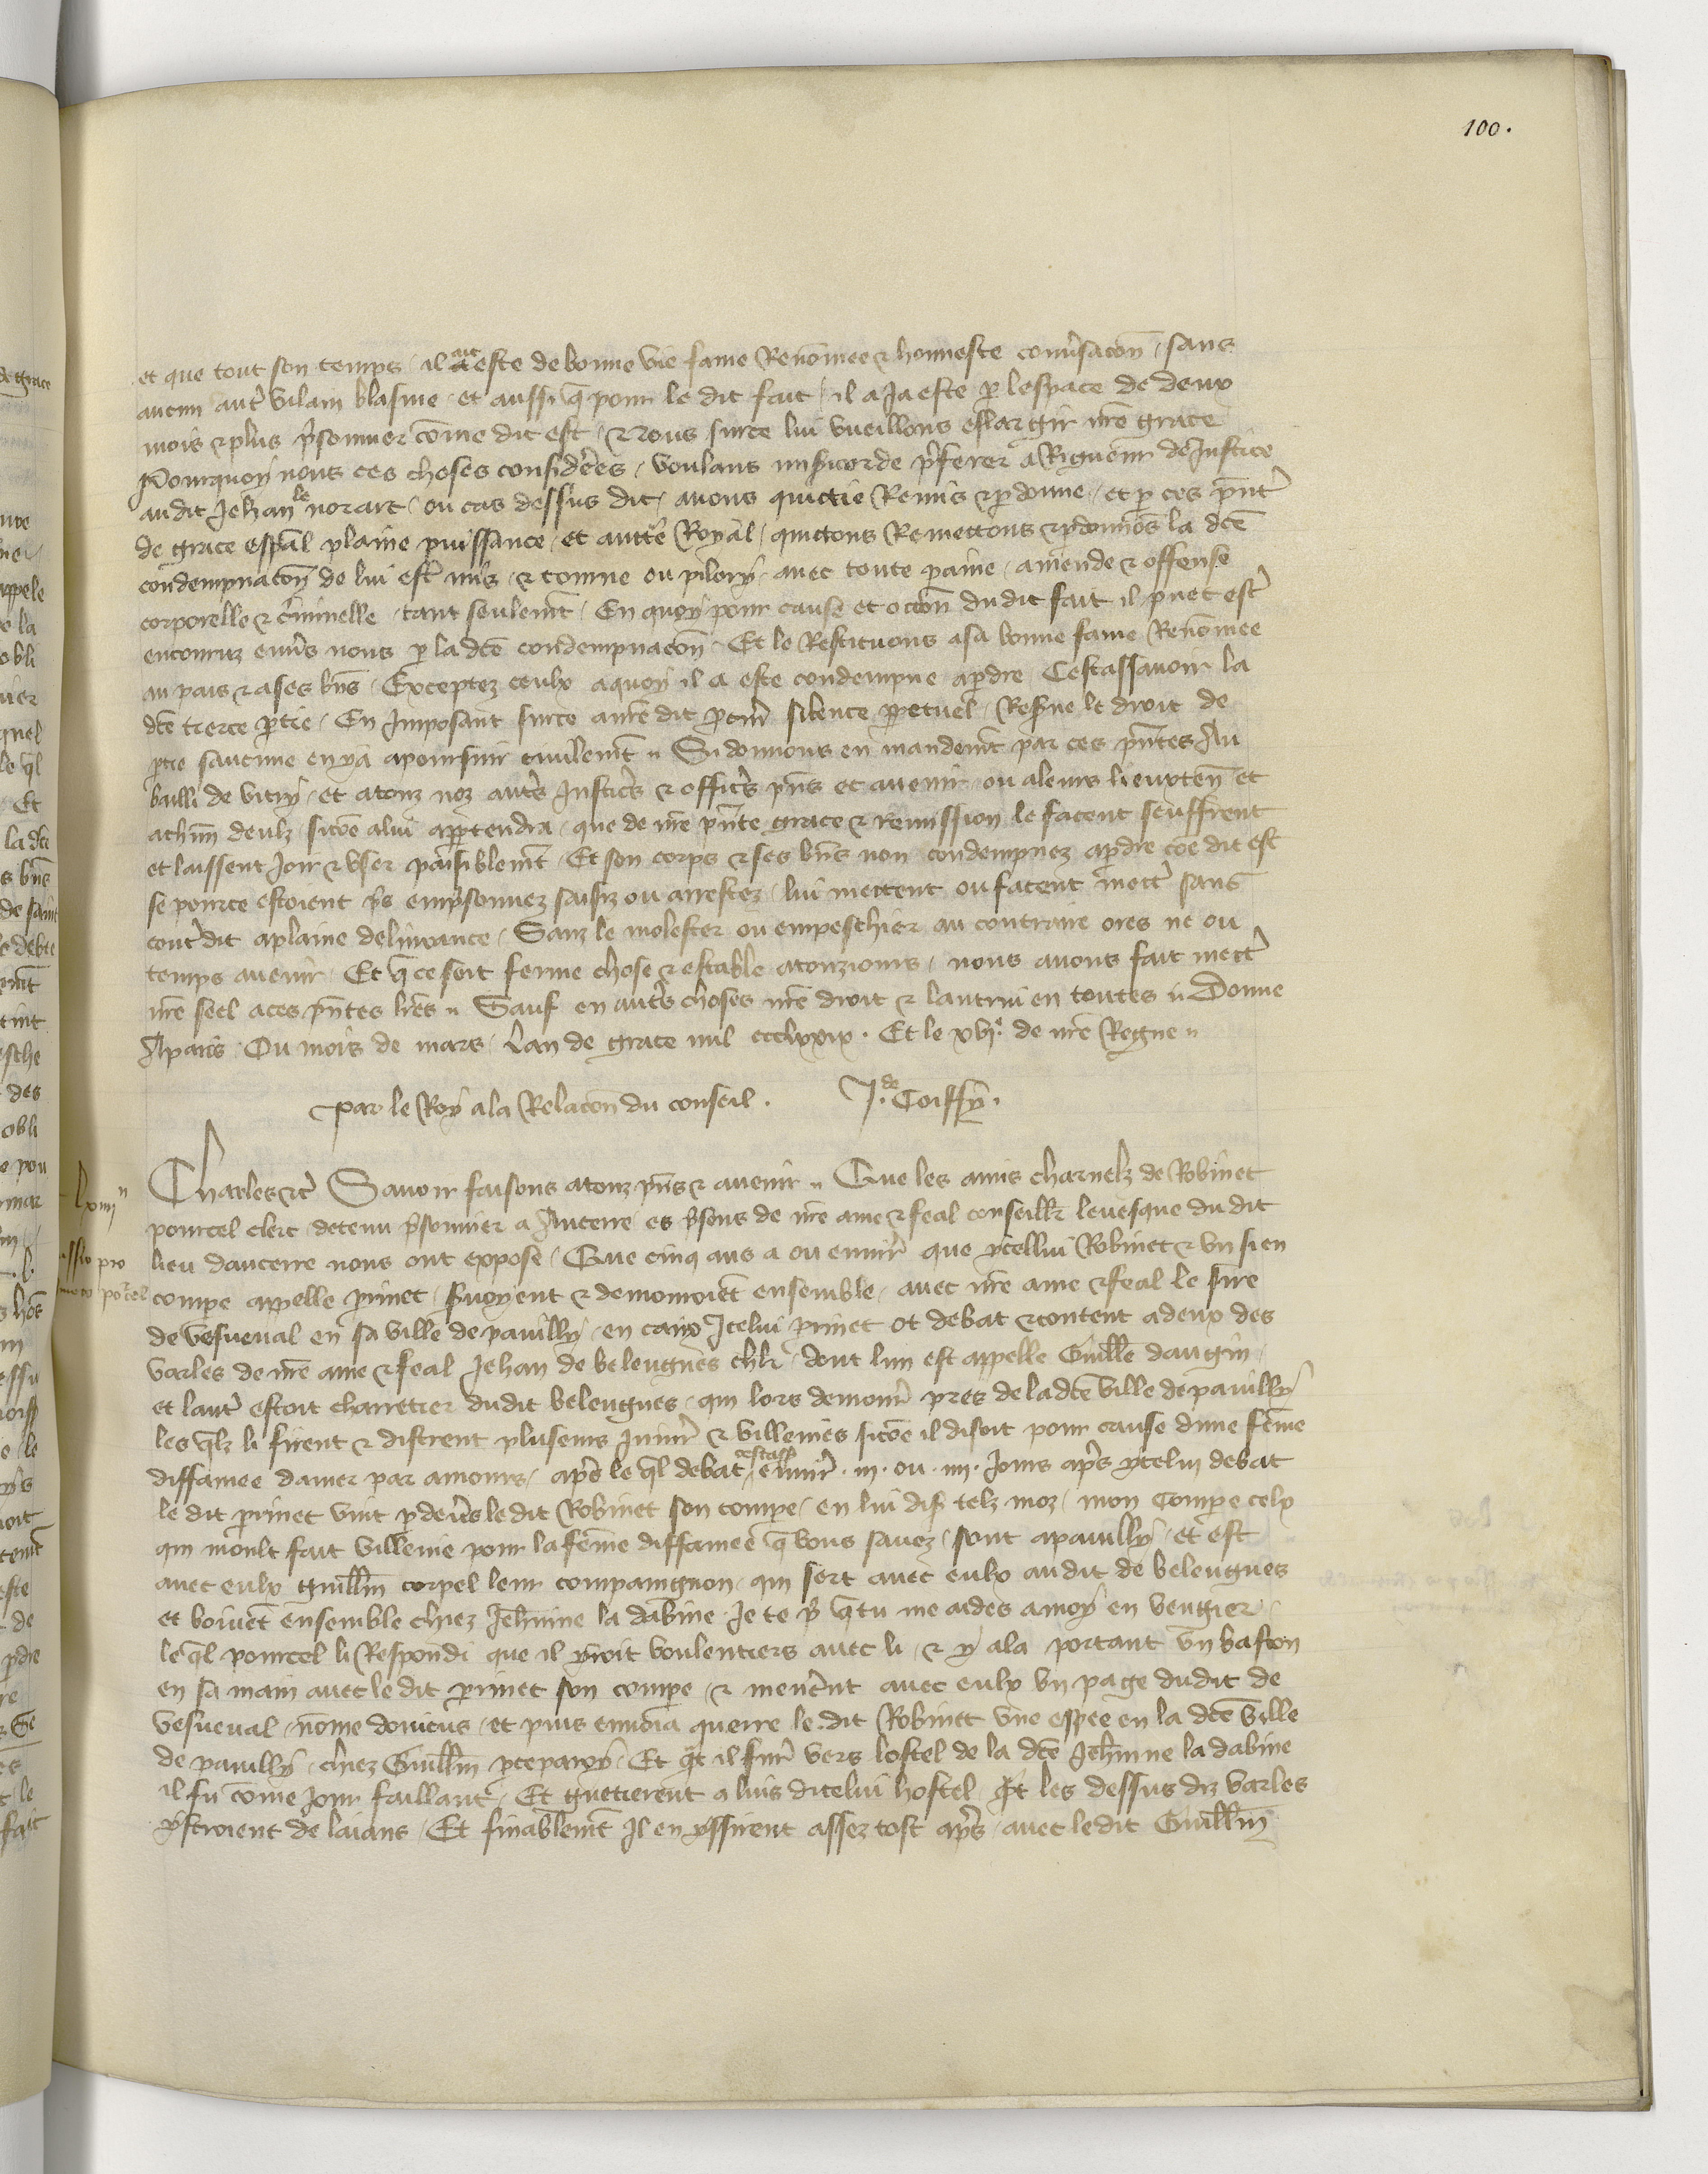 100.
et que tout son temps il ait este de bonne vie fame Renōmee & honneste conv̄sacōn sans
aucun aut̄ vilain blasme et aussi q̄ pour le dit fait il a Ja este p lespace de deux
mois & plus p̄sonnier cōme dit est & vous surce lui vueillons eslargir nr̄e grace
Pourquoy nous ces choses considerees voulans mis̄icorde p̄ferer a Rigueur de Justice
au dit Jehan le norart ou cas dessus dit avons quictie Remis & pdonne et p ces p̄nt̄
de grace esp̄al plaine puissance et auct̄e Royal quictons Remettons & pdonnōs la dc̄e
condempnacōn de lui estr̄ mis & tourne ou pilory avec toute paine amende & offense
corporelle & c̄minelle tant seulem̄t En quoy pour cause et occōn du dit fait il puet estr̄
encouruz env̄s nous p la dc̄e condempnacōn Et le Restituons a sa bonne fame Renōmee
au pais & a ses bn̄s Exceptez ceulx a quoy il a este condempne a pdre Cestassavoir la
dc̄e tierce ptie En Imposant surce a nr̄e dit pcur̄ silence ppetuel Res̄ve le droit de
ptie saucune en y a a poursuir civilem̄t Si donnons en mandem̄t par ces p̄ntes Au
bailli de vitry et a touz noz aut̄s Justic̄s & offic̄s p̄ns et avenir ou a leurs lieuxten̄ et
a ch̄un deulx sicōe a lui appartendra que de nr̄e p̄nte grace & remission le facent seuffrent
et laissent Joir & user paisiblem̄t Et son corps & ses bn̄s non condempnez a pdre cōe dit est
se pource estoient p̄s emp̄sonnez saisiz ou arrestez lui mettent ou facent mectr̄ sans
contr̄dit a plaine delivrance Sanz le molester ou empeschier au contraire ores ne ou
temps avenir Et q̄ ce soit ferme chose & estable a touziours nous avons fait mectr̄
nr̄e seel a ces p̄ntes lr̄es Sauf en aut̄s choses nr̄e droit & lautrui en toutes Donne
A paris Ou mois de mars Lan de grace mil ccclxxix. Et le xvj.e de nr̄e Regne
Par le Roy a la Relacōn du conseil. J. de Coiffy.
Charles &c̄ Savoir faisons a touz p̄ns & avenir Que les amis charnelz de Robinet
pourcel clerc detenu p̄sonnier a Aucerre es p̄sons de nr̄e ame & feal conseillr̄ levesque du dit
lieu daucerre nous ont expose Que cinq ans a ou environ que ycellui Robinet & un sien
compe appelle perinet s̄voyent & demouroiēt ensemble avec nr̄e ame & feal le sire
de vesneval en sa ville de pavilly en caux Icelui perinet ot debat & content a deux des
varles de nr̄e ame & feal Jehan de belengues chlr̄ dont lun est appelle Guill̄e dangin
et lautr̄ estoit charretier dudit belengues qui lors demour̄ pres de la dc̄e ville de pavilly
les q̄lz li firent & distrent pluseurs Iniur̄ & villenies sicōe il disoit pour cause dune fēme
diffamee damer par amours ap̄s le q̄l debat cestass̄ environ .iii. ou .iiii. Jours ap̄s ycelui debat
le dit perinet vint p dev̄s le dit Robinet son compe en lui dis̄ telz moz mon Compe celx
qui mont fait villenie pour la fēme diffamee q̄ vous savez sont a pavilly et est
avec eulx guill̄m corpel leur compaignon qui sert avec eulx au dit de belengues
et boivēt ensemble chiez Jeh̄nine la dabine Je te p̄ q̄ tu me aides a moy en vengier
le q̄l pourcel li Respondi que il yroit voulentiers avec li & y ala portant un baston
en sa main avec le dit perinet son compe & menerēnt avec eulx un page dudit de
vesneval nōme donicus et puis envoia querre le dit Robinet une espee en la dc̄e ville
de pavilly chez Guill̄m Et q̄t il fur̄ vers lostel de la dc̄e Jeh̄nine la dabine
il fu cōme Jour faillant Et guetterent a luis dicelui hostel q̄t les dessus diz varles
ystroient de laians Et finablem̄t Il en yssirent assez tost ap̄s avec ledit Guill̄m